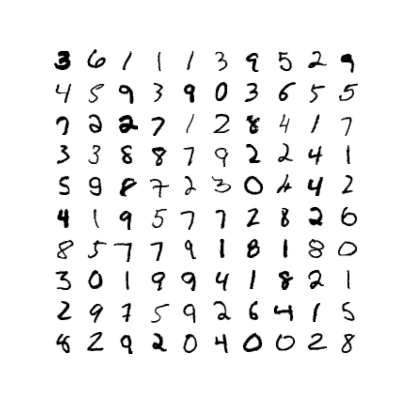 3 6 1 1 1 3 9 5 2 9
4 5 9 3 9 0 3 6 5 5
7 2 2 7 1 2 8 4 1 7
3 3 8 8 7 9 2 2 4 1
5 9 8 7 2 3 0 4 4 2
4 1 9 5 7 7 2 8 2 6
8 5 7 7 9 1 8 1 8 0
3 0 1 9 9 4 1 8 2 1
2 9 7 5 9 2 6 4 1 5
8 2 9 2 0 4 0 0 2 8